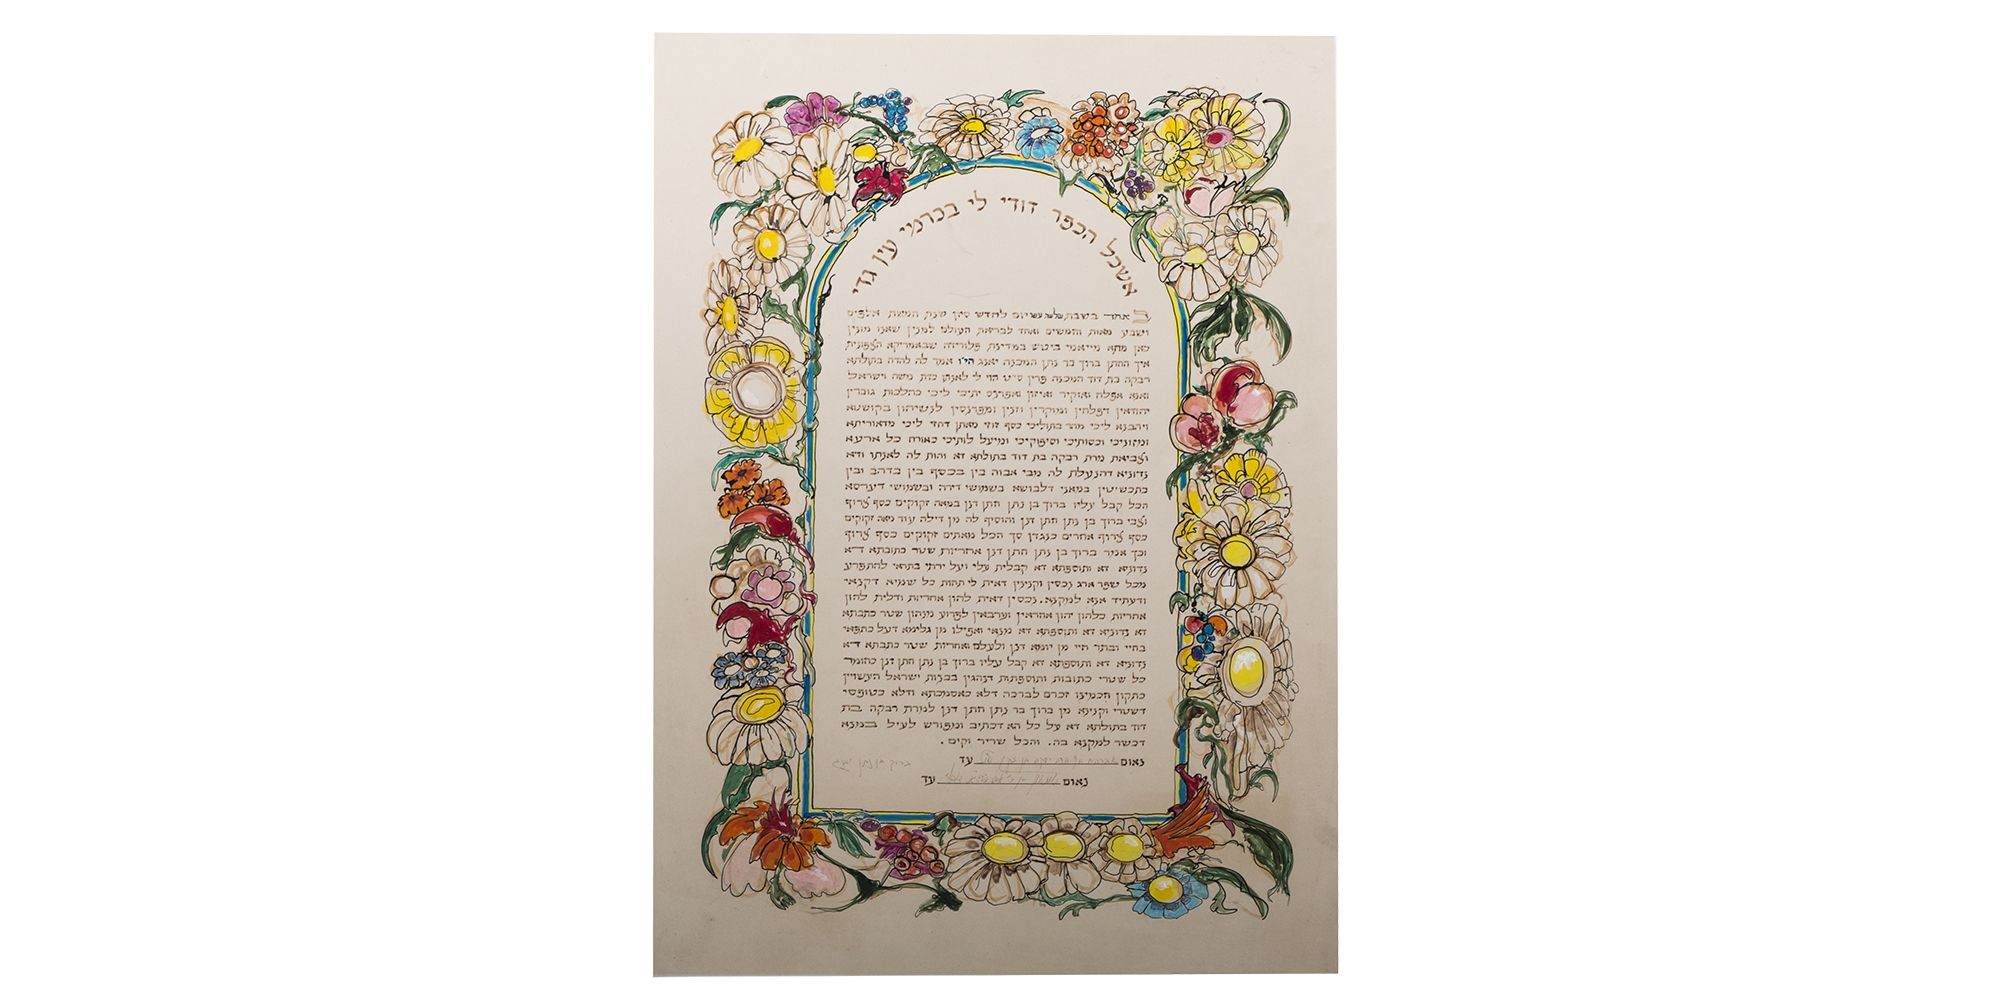 אשכל הכפר דודי לי בכרמי עין גדי
באחד בשבת שלשה עשר יום לחדש סיון שנת חמשת אלפים
ושבע מאות וחמשים ואחד לבריאת העולם למנין שאנו מונין
כאן מתא מייאמי ביטש במדינת פלורידה שבאמריקא הצפונית
איך החתן ברוך בר נתן המכנה יאנג הי״ו אמר לה להדה בתולתא
רבקה בת דוד המכנה פרין הוי לי לאנתו כדת משה וישראל
ואנא אפלח ואוקיר ואיזון ואפרנס יתיכי ליכי כהלכות גוברין
יהודאין דפלחין ומוקרין וזנין ומפרנסין לנשיהון בקושטא
ויהבנא ליכי מהר בתוליכי כסף זוזי מאתן דחזי ליכי מדאוריתא
ומזוניכי וכסותיכי וסיפוקיכי ומיעל לותיכי כאורח כל ארעא
וצביאת מרת רבקה בת דוד בתולתא דא והות לה לאנתו ודא
נדוניא דהנעלת לה מבי אבוה בין בכסף בין בדהב ובין
בתכשיטין במאני דלבושא בשמושי דירה ובשמושי דערסא
הכל קבל עליו ברוך בן נתן חתן דנן במאה זקוקים כסף צרוף
וצבי ברוך בן נתן חתן דנן והוסיף לה מן דילה עוד מאה זקוקים
כסף צרוף אחרים כנגדן סך הכל מאתים זקוקים כסף צרוף
וכך אמר ברוך בן נתן חתן דנן אחריות שטר כתובתא דא
נדוניא דא ותוספתא דא קבלית עלי ועל ירתי בתראי להתפרע
מכל שפר ארג נכסין וקנינין דאית לי תחות כל שמיא דקנאי
ודעתיד אנא למקנא. נכסין דאית להון אחריות ודלית להון
אחריות כלהון יהון אחראין וערבאין לפרוע מנהון שטר כתבתא
דא נדוניא דא ותוספתא דא מנאי ואפילו מן גלימא דעל כתפאי
בחיי ובתר חיי מן יומא דנן ולעלם ואחריות שטר כתבתא דא
נדוניא דא ותוספתא דא קבל עליו ברוך בן נתן חתן דנן כחומר
כל שטרי כתובות ותוספתות דנהגין בבנות ישראל העשויין
כתקון חכמינו זכרם לברכה דלא כאסמכתא ודלא כטופסי
דשטרי וקנינא מן ברוך בר נתן חתן דנן למרת רבקה בת
דוד בתולתא דא על כל הא דכתיב ומפורש לעיל במנא
דכשר למקנא בה. והכל שריר וקים.
נאום עד ברוך בן נתן יאנג
נאום עד